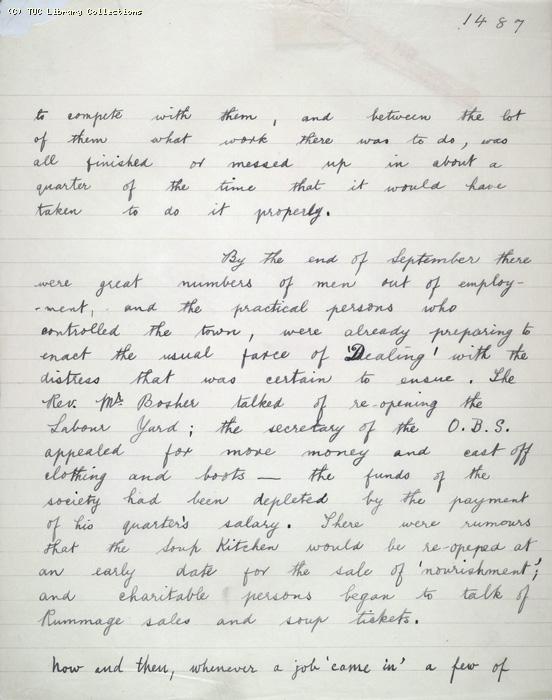 (C) TUC Library Collections
1487
to compete with them, and between the lot
of them what work there was to do, was
all finished or messed up in about a
quarter of the time that it would have
taken to do it properly.
By the end of September there
were great numbers of men out of employ-
-ment, and the practical persons who
controlled the town, were already preparing to
enact the usual farce of 'Dealing' with the
distress that was certain to ensue. The
Rev. Mr. Bosher talked of re-opening the
Labour Yard; the secretary of the O.B.S.
appealed for more money and cast off
clothing and boots — the funds of the
society had been depleted by the payment
of his quarter's salary. There were rumours
that the Soup Kitchen would be re-opened at
an early date for the sale of 'nourishment';
and charitable persons began to talk of
Rummage sales and soup tickets.
Now and then, whenever a job 'came in' a few of